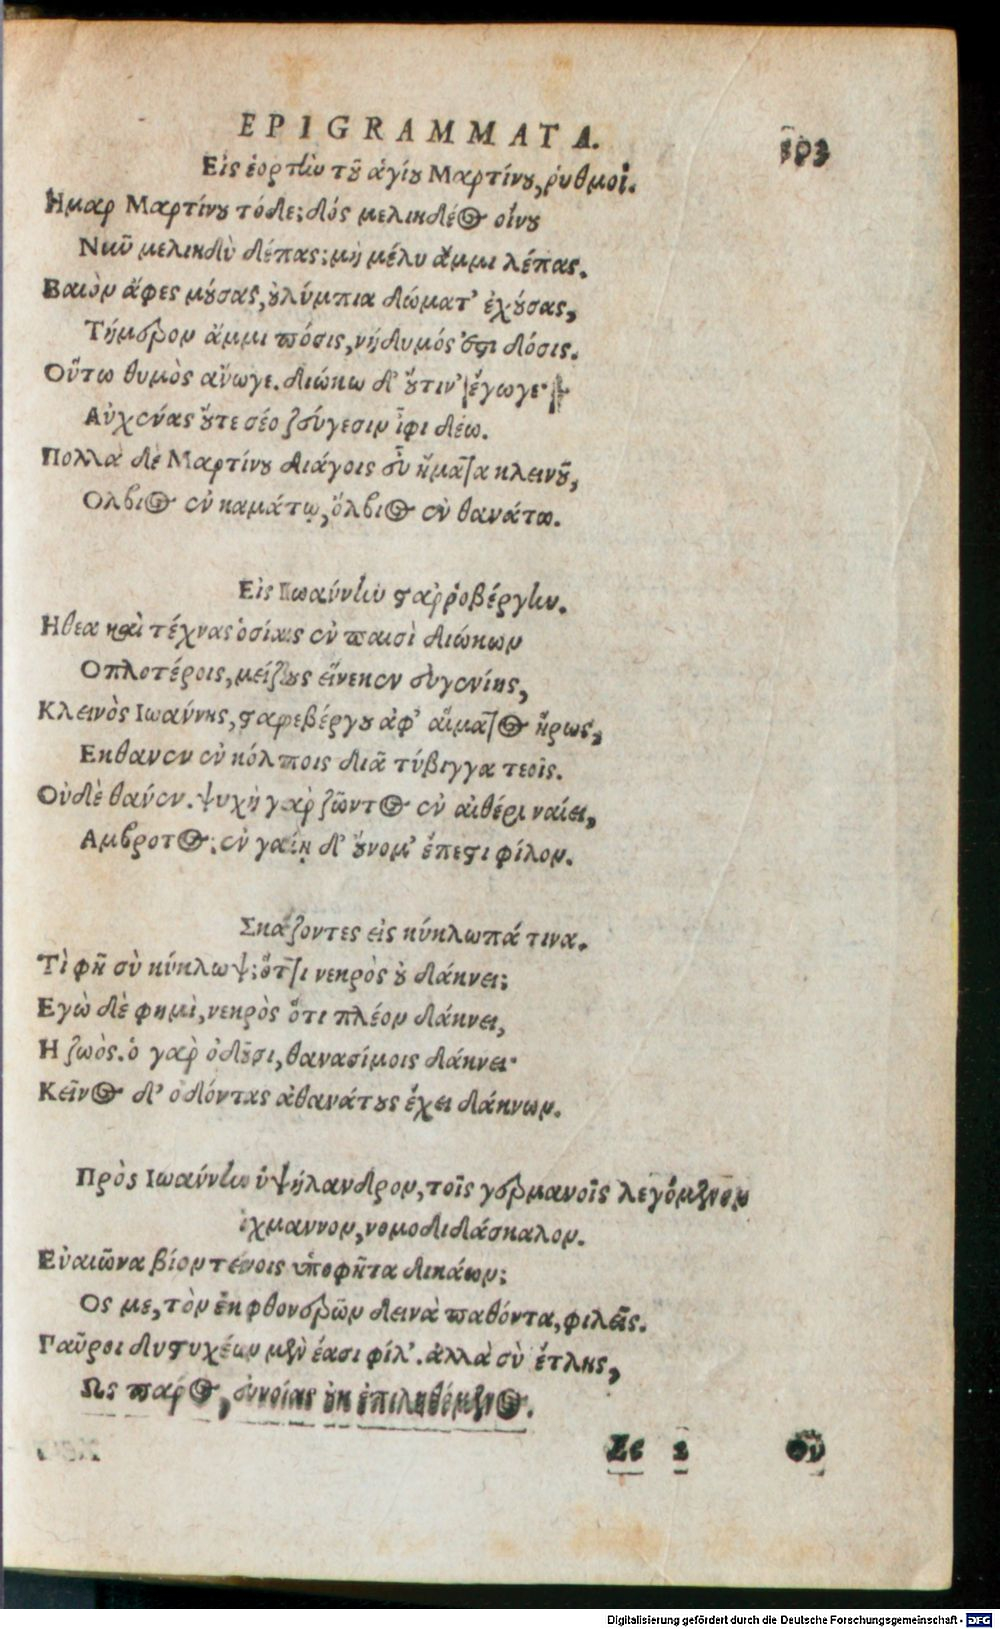 EPIGRAMMATA.
Εἰς ἑορτὴν τοῦ ἁγίου Μαρτίνου, ῥυθμοί.
Ημαρ Μαρτίνου τόδε; δός μελιηδέος οἴνου
Νῦν μελιηδὺ δέπας; μὴ μέλυ ἄμμι λέπας.
Βαιὸν ἄφες μούσας, οὐλύμπια δώματ' ἐχούσας,
Τήμερον ἄμμι πόσις, νήδυμός ἐστι δόσις.
Οὕτω θυμὸς ἄνωγε. διώκω δ' οὔτιν' ἔγωγε·
Αὐχένας οὔτε σέο ζεύγεσιν ἶφι δέω.
Πολλὰ δὲ Μαρτίνου διάγοις εὖ ἤματα κλεινοῦ,
Ολβιος ἐν καμάτῳ, ὄλβιος ἐν θανάτῳ.
Εἰς Ιωάννην σταῤῥοβέργην.
Ηθεα καὶ τέχνας ὁσίας ἐν παισὶ διώκων
Οπλοτέροις, μείζους εἵνεκεν εὐγενίης,
Κλεινὸς Ιωάννης, σταρεβέργου ἀφ' αἵματος ἥρως,
Εκθανεν ἐν κόλποις διᾶ τύβιγγα τεοῖς.
Οὐδὲ θάνεν. ψυχὴ γὰρ ζῶντος ἐν αἰθέρι ναίει,
Αμβροτος; ἐν γαίῃ δ' οὔνομ' ἔπεστι φίλον.
Σκάζοντες εἰς κύκλωπά τινα.
Τὶ φῂ σὺ κύκλωψ; ὅττι νεκρὸς οὐ δάκνει;
Εγὼ δὲ φημὶ, νεκρὸς ὅτι πλέον δάκνει,
Η ζωὸς. ὁ γὰρ ὀδοῦσι, θανασίμοις δάκνει·
Κεῖνος δ' ὀδόντας ἀθανάτους ἔχει δάκνων.
Πρὸς Ιωάννην ὑψήλανδρον, τοῖς γερμανοῖς λεγόμενον
ἱχμαννον, νομοδιδάσκαλον.
Εὐαιῶνα βίον τένοις ὑποφῆτα δικάων;
Ος με, τὸν ἐκ φθονερῶν δεινὰ παθόντα, φιλεῖς.
Γαῦροι δυστυχέων μὲν ἔασι φίλ'. ἀλλὰ σὺ ἔτλης,
Ως παρος, εὐνοίας οὐκ ἐπιληθόμενος.
Ζε 2 Οὐ
Digitalisierung gefördert durch die Deutsche Forschungsgemeinschaft - DFG